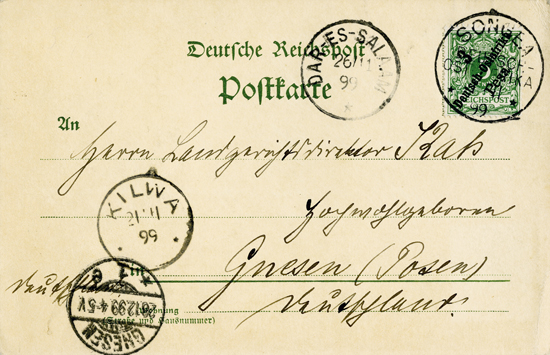 Deutsche Reichspost
Postkarte
DAR-ES-SALAAM
26/11
99
SONGEA
3
Pesa
REICHSPOST
99
An
Herrn Landgerichtsdirektor Kah
Hochwohlgeboren
KILWA
11
99
Gnesen (Posen)
Deutschland
Deutschland
Wohnung
(Straße und Hausnummer)
GNESEN
20.12.99.4-5N.